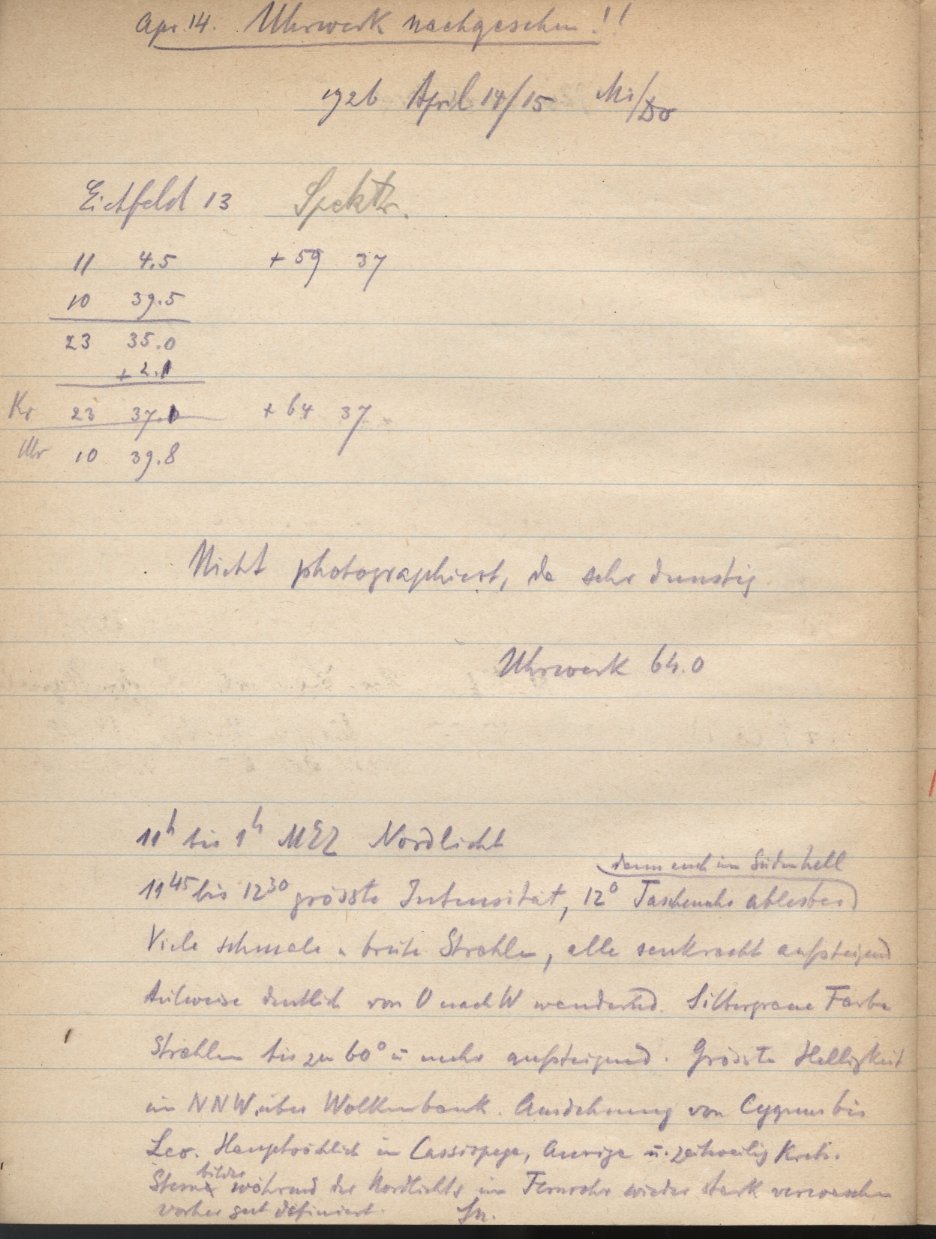 Apr. 14. Uhrwerk nachgesehen!!
1926 April 14/15 Mi/Do
Eichfeld 13 Spektr.
11 4.5 + 59 37
10 39.5
23 35.0
+ 2.1
Kr 23 37.1 + 64 37
Uhr 10 39.8
Nicht photographiert, da sehr dunstig.
Uhrwerk 64.0
11h bis 1h MEZ Nordlicht
dann auch im Süden hell
11 45 bis 12 30 grösste Intensität, 12 0 Taschenuhr ablesbar
Viele schmale u breite Strahlen, alle senkrecht aufsteigend
teilweise deutlich von O nach W wandernd. Silbergraue Farbe
Strahlen bis zu 60° u mehr aufsteigend. Grösste Helligkeit
im NNW über Wolkenbank. Ausdehnung von Cygnus bis
Leo. Hauptsächlich in Cassiopeja, Auriga u. zeitweilig Krebs.
Sternbilder während des Nordlichts im Fernrohr wieder stark verwaschen
vorher gut definiert.